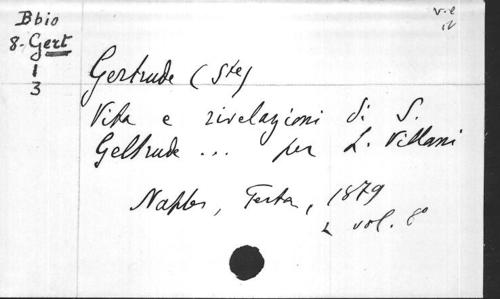 Bbio
8-Gert
1
3
v.e
Gertrude (Ste)
Vita e rivelazioni di S.
Geltrude ... per L. Villani
Naples, Testa, 1879
2 vol. 8°